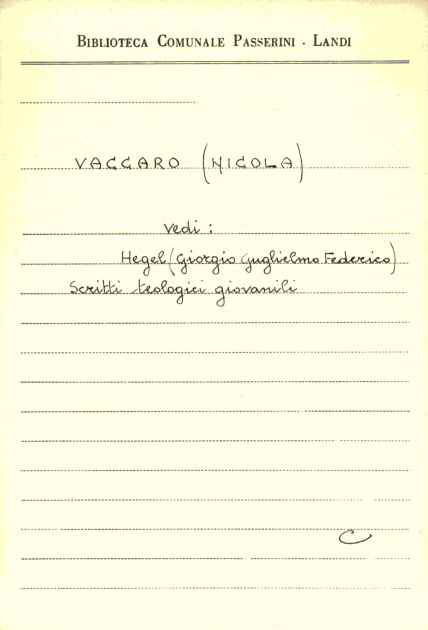 BIBLIOTECA COMUNALE PASSERINI - LANDI
VACCARO (NICOLA)
Vedi :
Hegel (Giorgio Guglielmo Federico)
Scritti teologici giovanili
C